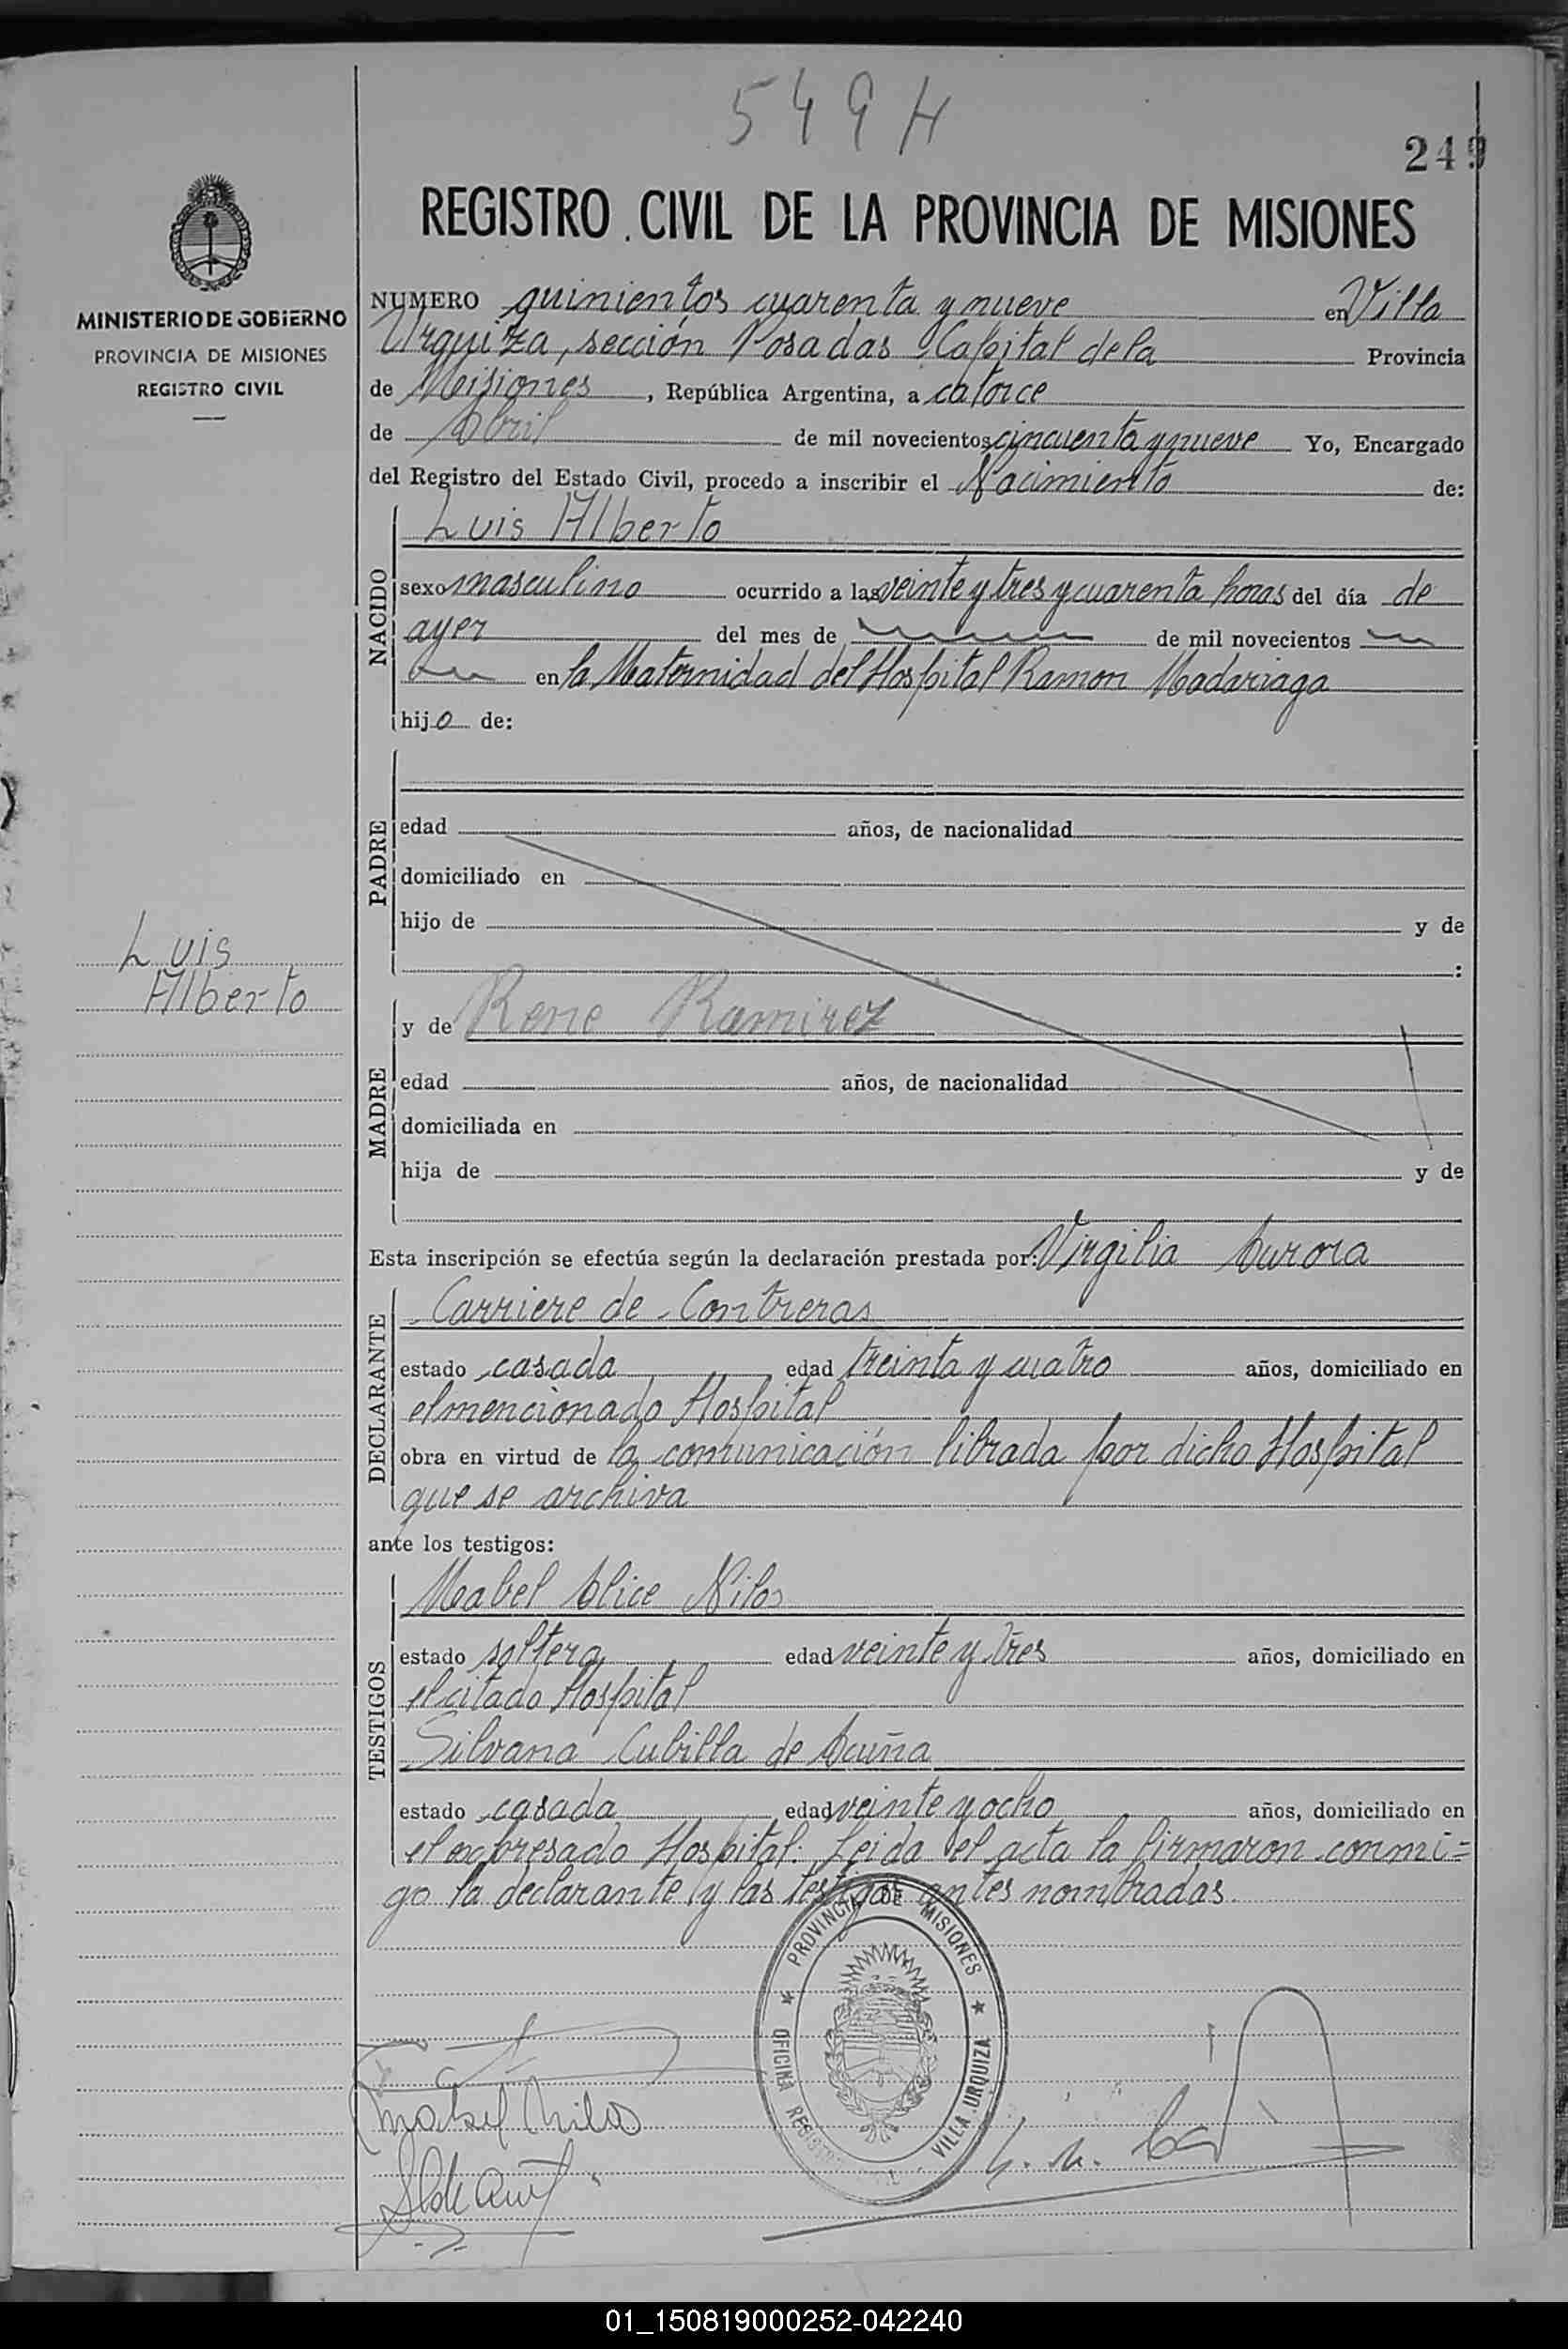 549 H
249
REGISTRO CIVIL DE LA PROVINCIA DE MISIONES
MINISTERIO DE GOBIERNO
PROVINCIA DE MISIONES
REGISTRO CIVIL
NUMERO quinientos cuarenta y nueve en Villa
Urquiza, sección Posadas Capital de la Provincia
de Misiones, República Argentina, a catorce
de Abril de mil novecientos cincuenta y nueve Yo, Encargado
del Registro del Estado Civil, procedo a inscribir el Nacimiento de:
NACIDO
Luis Alberto
sexo masculino ocurrido a las veinte y tres y cuarenta horas del día de
ayer del mes de de mil novecientos
en la Maternidad del Hospital Ramon Madariaga
hijo de:
PADRE
edad años, de nacionalidad
domiciliado en
hijo de y de
:
Luis
Alberto
MADRE
y de Rene Ramirez
edad años, de nacionalidad
domiciliada en
hija de y de
Esta inscripción se efectúa según la declaración prestada por: Virgilia Aurora
DECLARANTE
Carriere de Contreras
estado casada edad treinta y cuatro años, domiciliado en
el mencionado Hospital
obra en virtud de la comunicación librada por dicho Hospital
que se archiva
ante los testigos:
TESTIGOS
Mabel Alice Nilos
estado soltera edad veinte y tres años, domiciliado en
el citado Hospital
Silvana Cubilla de Acuña
estado casada edad veinte y ocho años, domiciliado en
el expresado Hospital. Leida el acta la firmaron conmi=
go la declarante y las testigos antes nombradas.
PROVINCIA DE MISIONES
OFICINA REGISTRO CIVIL VILLA URQUIZA
Mabel Nilos
01_150819000252-042240